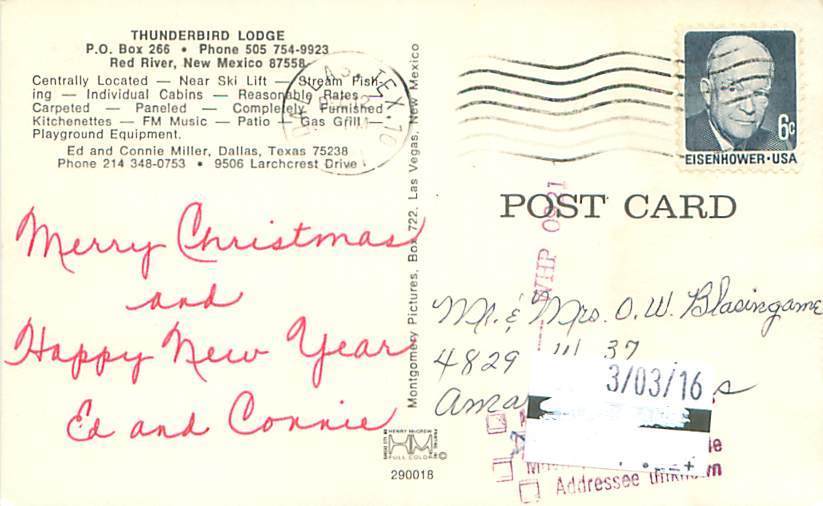 THUNDERBIRD LODGE
P.O. Box 266 • Phone 505 754-9923
Red River, New Mexico 87558
Centrally Located — Near Ski Lift — Stream Fish-
ing — Individual Cabins — Reasonable Rates —
Carpeted — Paneled — Completely Furnished
Kitchenettes — FM Music — Patio — Gas Grill —
Playground Equipment.
Ed and Connie Miller, Dallas, Texas 75238
Phone 214 348-0753 • 9506 Larchcrest Drive
Merry Christmas
and
Happy New Year
Ed and Connie
Montgomery Pictures, Box 722, Las Vegas, New Mexico
HENRY McGREW
HM
FULL COLOR
290018
TEX.
6c
EISENHOWER • USA
POST CARD
WHP 0921
Mr. & Mrs. O. W. Blasingame
4829 37
3/03/16
Addressee